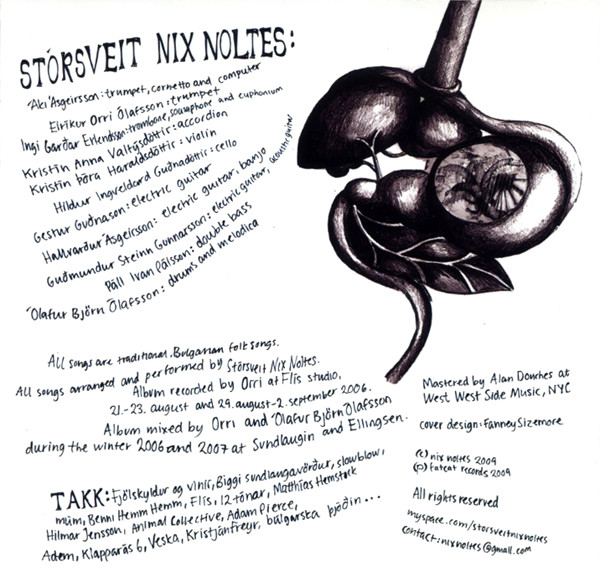 STÓRSVEIT NIX NOLTES:
Áki Ásgeirsson: trumpet, cornetto and computer
Eiríkur Orri Ólafsson: trumpet
Ingi Garðar Erlendsson: trombone, sousaphone and euphonium
Kristín Anna Valtýsdóttir: accordion
Kristín Þóra Haraldsdóttir: violin
Hildur Ingveldard Guðnadóttir: cello
Gestur Guðnason: electric guitar
Hallvarður Ásgeirsson: electric guitar, banjo
Guðmundur Steinn Gunnarsson: electric guitar, acoustic guitar
Páll Ivan Pálsson: double bass
Ólafur Björn Ólafsson: drums and melodica
All songs are traditional Bulgarian folk songs.
All songs arranged and performed by Stórsveit Nix Noltes.
Album recorded by Orri at Flís studio,
21.-23. august and 29. august-2. september 2006.
Album mixed by Orri and Ólafur Björn Ólafsson
during the winter 2006 and 2007 at Sundlaugin and Ellingsen.
TAKK: Fjölskyldur og vinir, Biggi sundlaugavörður, slowblow,
múm, Benni Hemm Hemm, Flís, 12-tónar, Matthías Hemstock
Hilmar Jensson, Animal Collective, Adam Pierce,
Adem, Klapparás 6, Veska, Kristjánfreyr, búlgarska þjóðin...
Mastered by Alan Douches at
West West Side Music, NYC
cover design: Fanney Sizemore
(c) nix noltes 2009
(p) fatcat records 2009
All rights reserved
myspace.com/storsveitnixnoltes
contact: nixnoltes@gmail.com